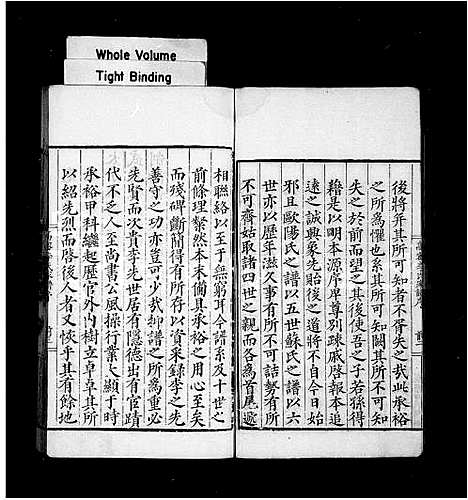 Whole Volume
Tight Binding
後將并其所可知者不胥失之哉此承裕
之所爲懼也系其所可知闕其所不可知
失之於前而望之其後使吾之子若孫得
藉是以明本源序卑尊別疎戚啓報本追
遠之誠興象先貽後之道將不自今日始
邪且歐陽氏之譜以五世蘇氏之譜以六
世亦以歷年滋久事有所不可詰勢有所
不可齊姑取諸四世之親而各爲首尾遞
相聯絡以至于無窮耳今譜系及十世之
前條理鑿然本末備具承裕之用心至矣
而殘碑斷簡得有所存以資采錄李之先
善守之功亦豈可少哉抑譜之所爲重必
先賢而次貴李先世居有隱德出有官蹟
代不乏人至尚書公風操行業大顯于時
承裕甲科繼起歷官外內樹立卓卓其所
以紹先烈而啓後人者又恢乎其有餘地